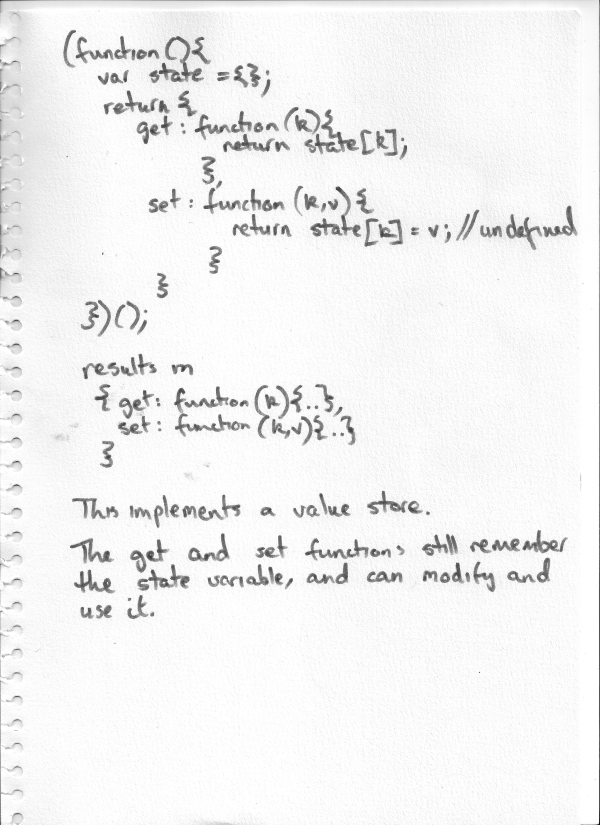 (function(){
var state = {};
return {
get: function(k){
return state[k];
},
set: function(k,v){
return state[k] = v; //undefined
}
}
})();
results in
{ get: function(k){..},
set: function(k,v){..}
}
This implements a value store.
The get and set functions still remember
the state variable, and can modify and
use it.